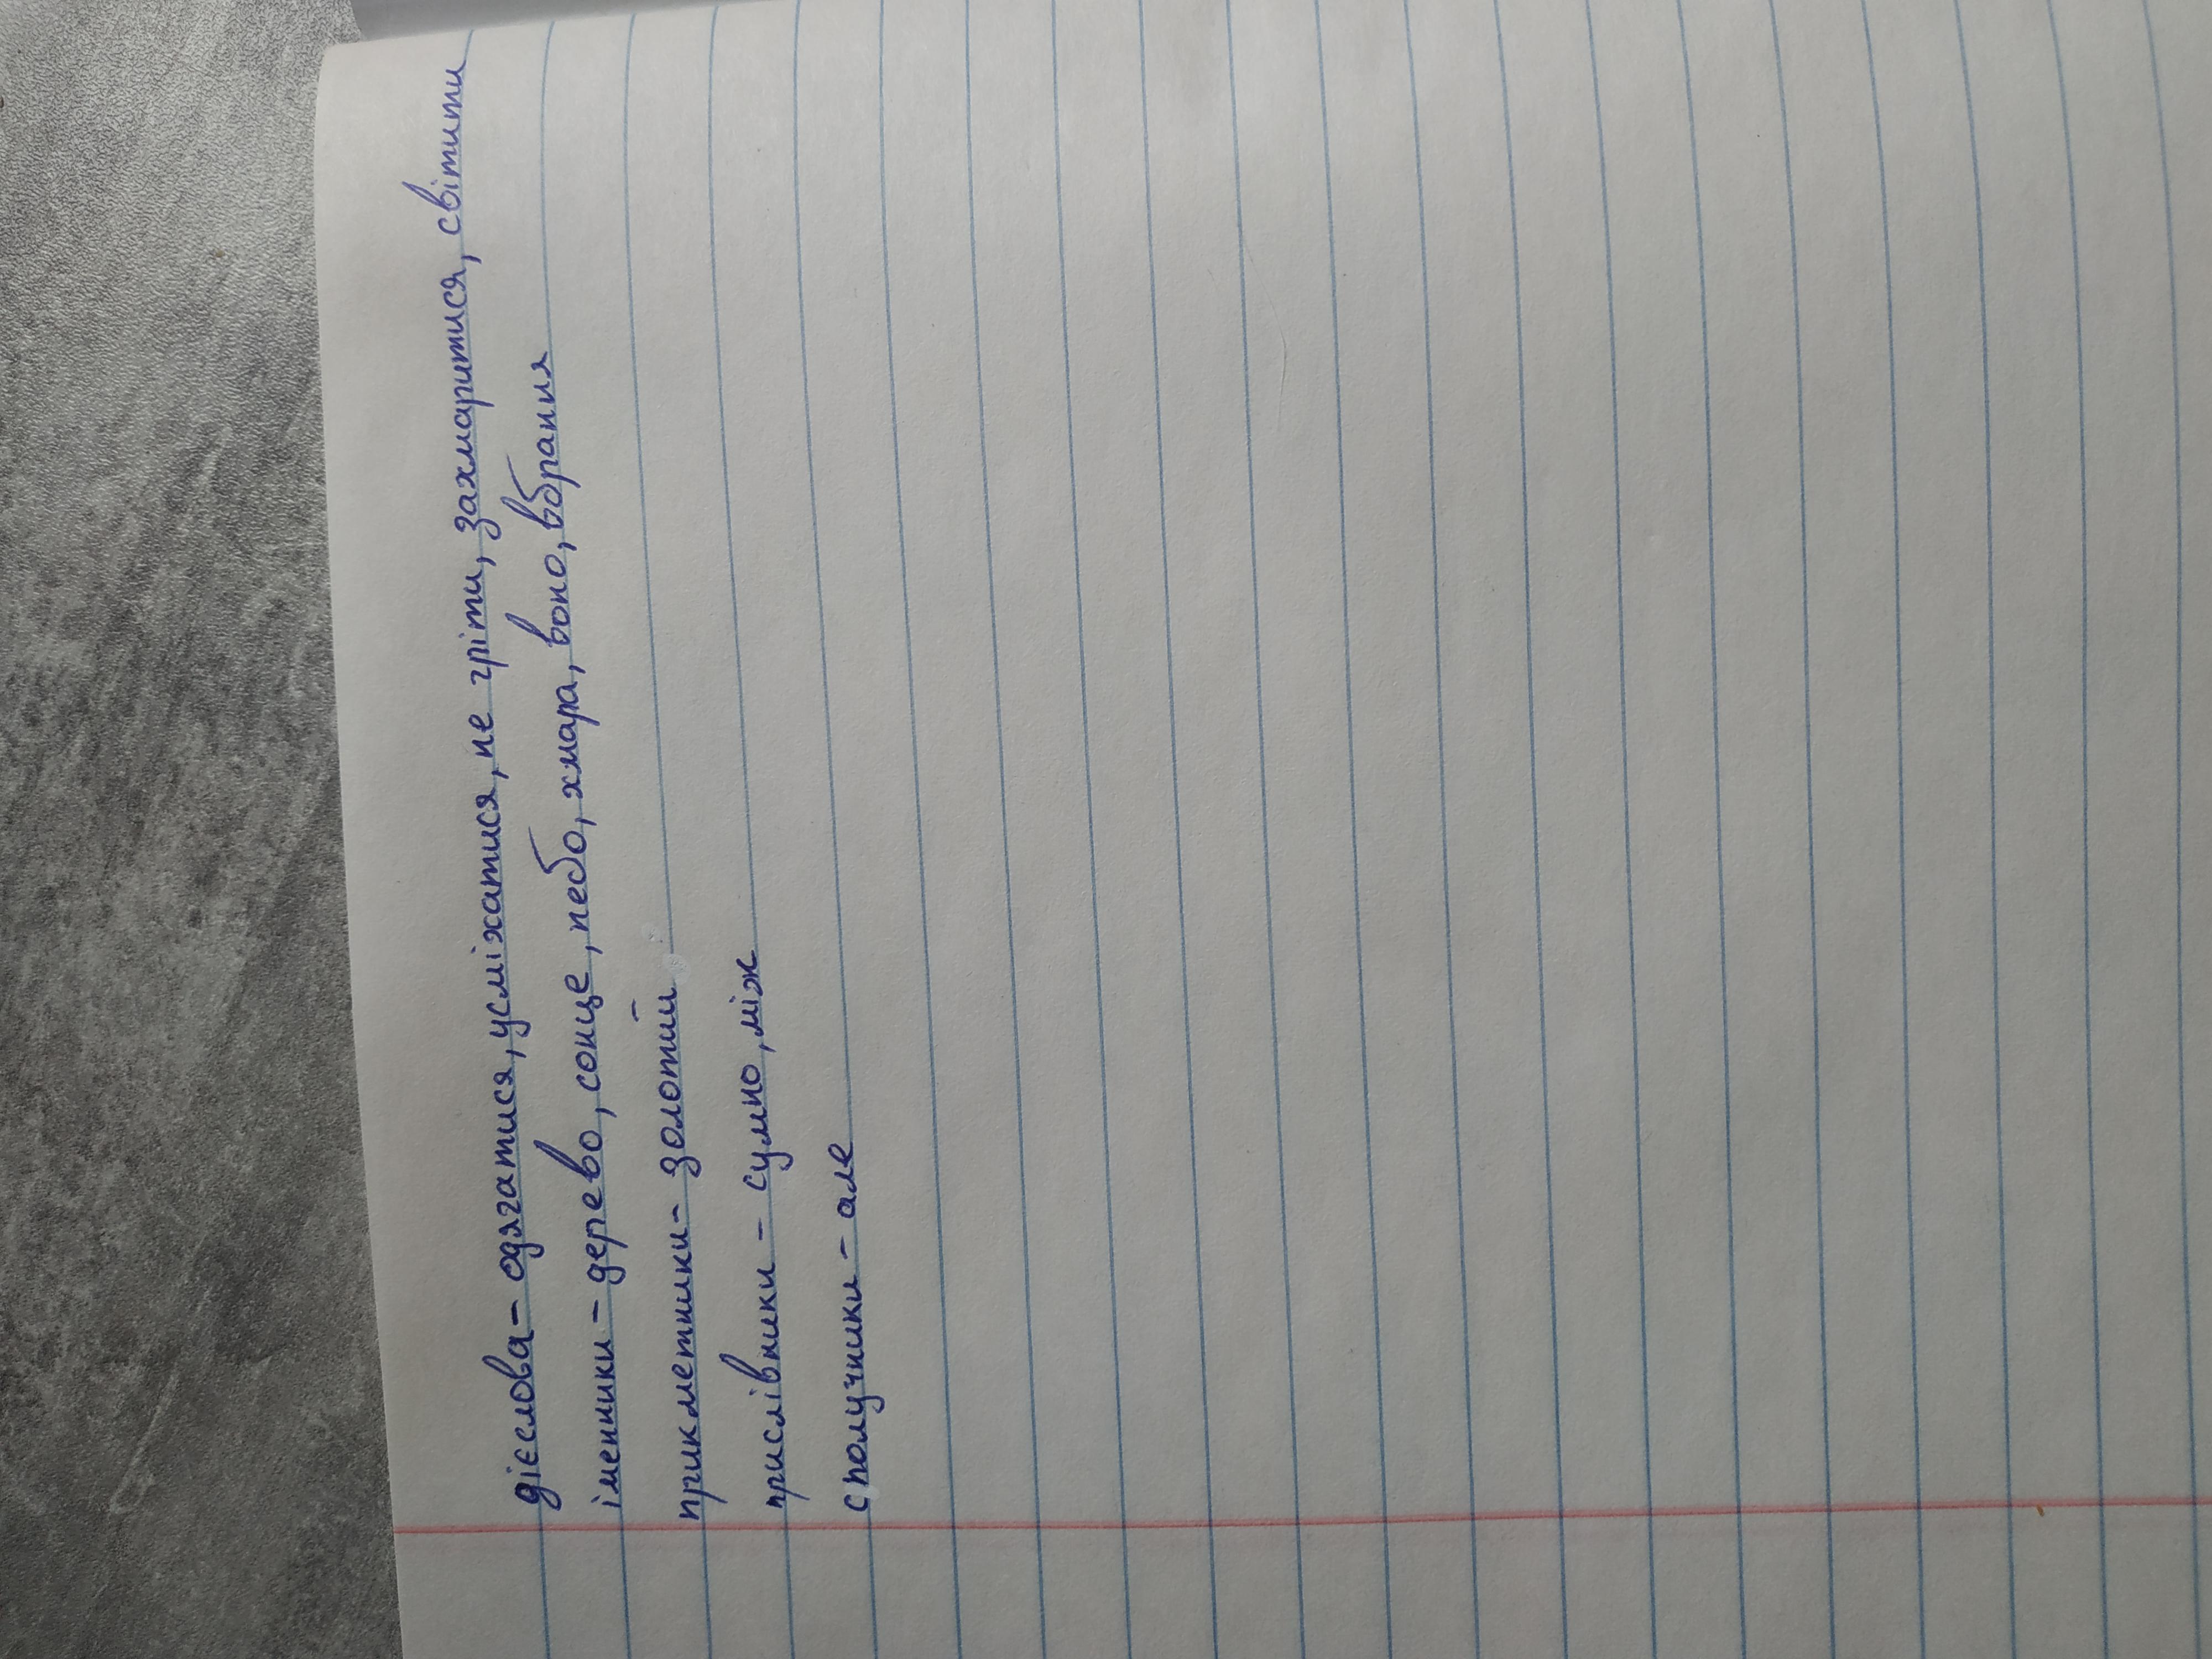 дієслова - одягатися, усміхатися, не гріти, захмаритися, світити
іменники - дерево, сонце, небо, хмара, воно, вбрання
прикметники - золотий
прислівники - сумно, між
сполучники - але